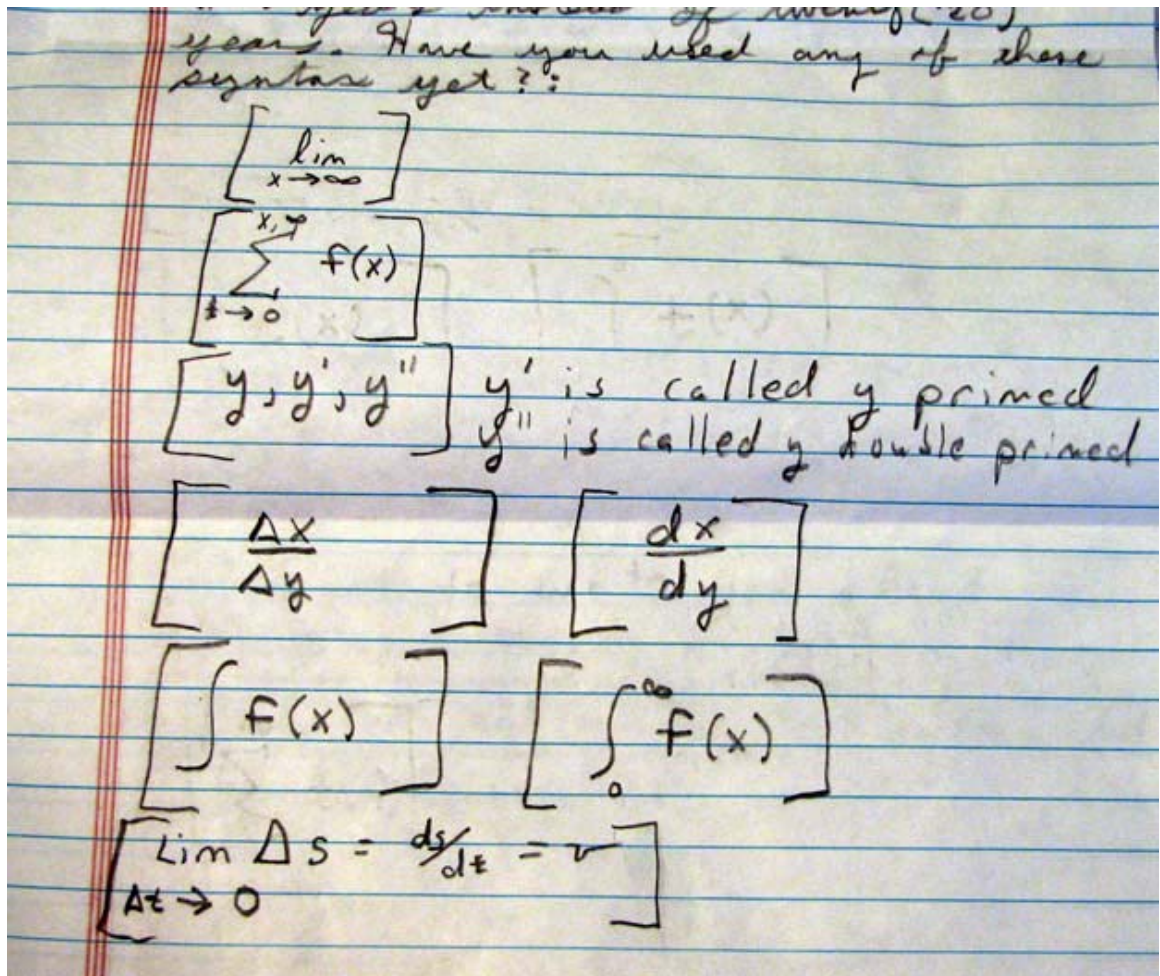 years instead of twenty (20)
years. Have you used any of these
syntax yet?:
[lim x→∞]
[∑ x,∞ t→0 f(x)]
[y, y', y''] y' is called y primed
y'' is called y double primed
[Δx/Δy] [dx/dy]
[∫ f(x)] [∫₀^∞ f(x)]
[Lim Δs = ds/dt = v
Δt → 0]